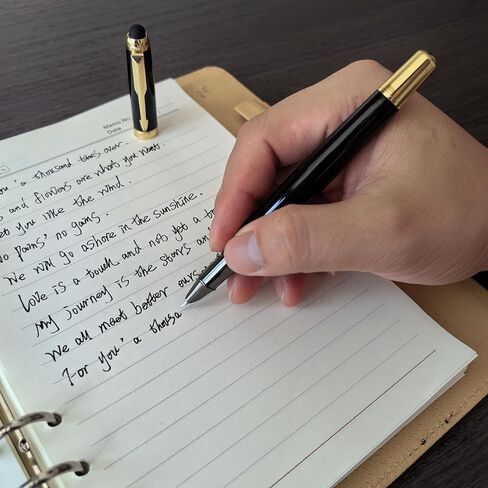 Memo No.
Date
you' a thousand times over.
and flowers are what you want.
et you like the wind.
No pains' no gains.
We will go ashore in the sunshine.
Love is a touch and not yet a
My journey is the stars an
We all meet better ours
For you' a thousa